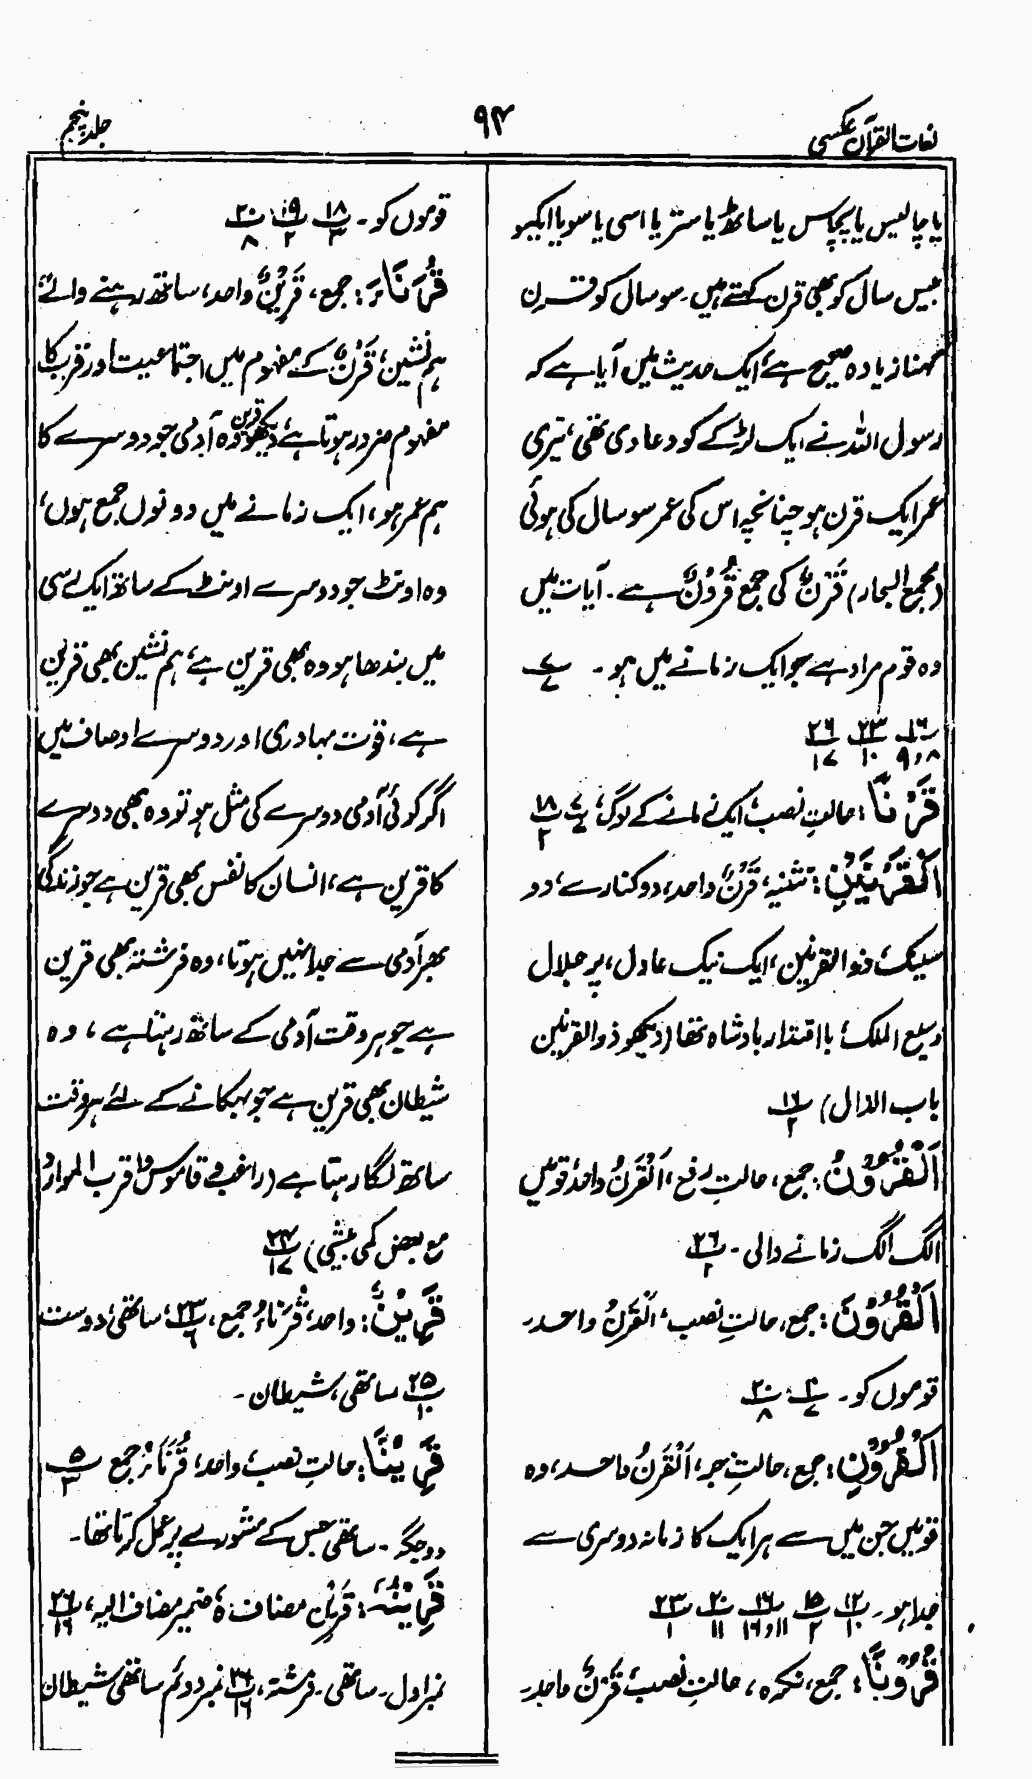 لغات القرآن عکسی
۹۴
جلد پنجم
یا چالیس یا پچاس یا ساٹھ یا ستر یا اسی یا سو یا ایکسو
بیس سال کو بھی قرن کہتے ہیں۔ سو سال کو قرن
کہنا زیادہ صحیح ہے، ایک حدیث میں آیا ہے کہ
رسول اللہ نے ایک لڑکے کو دعا دی تھی، تیری
عمر ایک قرن ہو چنانچہ اس کی عمر سو سال کی ہوئی
(مجمع البحار) قَرْنٌ کی جمع قُرُوْنٌ ہے۔ آیات میں
وہ قوم مراد ہے جو ایک زمانے میں ہو۔ ۷/۷
۱۶/۸،۹ ۲۳/۱۰ ۲۶/۱۷
قَرْنًا: حالتِ نصب، ایک زمانے کے لوگ، ۷/۷ ۱۸/۲
اَلْقَرْنَیْنِ: تثنیہ، قَرْنٌ واحد، دو کنارے، دو
سینگ، ذوالقرنین، ایک نیک عادل، پر جلال
وسیع الملک، بااقتدار بادشاہ تھا (دیکھو ذوالقرنین
باب الذال) ۱۶/۲
اَلْقُرُوْنُ: جمع، حالتِ رفع، اَلْقَرْنُ واحد، قومیں
الگ الگ زمانے والی۔ ۲۶/۲
اَلْقُرُوْنَ: جمع، حالتِ نصب، اَلْقَرْنُ واحد۔
قوموں کو۔ ۴/۷، ۲۰/۸
اَلْقُرُوْنِ: جمع، حالتِ جر، اَلْقَرْنُ واحد، وہ
قومیں جن میں سے ہر ایک کا زمانہ دوسری سے
جدا ہو۔ ۱۲/۱۰ ۱۵/۲ ۱۶/۱۱،۱۶ ۲۰/۱۱ ۲۳/۱
قُرُوْنًا: جمع، نکرہ، حالتِ نصب، قَرْنٌ واحد۔
قوموں کو۔ ۱۸/۳ ۱۹/۲ ۲۰/۸
قُرَنَاءَ: جمع، قَرِیْنٌ واحد، ساتھ رہنے والے،
ہم نشین، قَرْنٌ کے مفہوم میں اجتماعیت اور قرب کا
مفہوم ضرور ہوتا ہے، دیکھو قرن وہ آدمی جو دوسرے کا
ہم عمر ہو، ایک زمانے میں دونوں جمع ہوں،
وہ اونٹ جو دوسرے اونٹ کے ساتھ ایک رسی
میں بندھا ہو وہ بھی قرین ہے، ہم نشین بھی قرین
ہے، قوت بہادری اور دوسرے اوصاف میں
اگر کوئی آدمی دوسرے کی مثل ہو تو وہ بھی دوسرے
کا قرین ہے، انسان کا نفس بھی قرین ہے جو زندگی
بھر آدمی سے جدا نہیں ہوتا، وہ فرشتہ بھی قرین
ہے جو ہر وقت آدمی کے ساتھ رہتا ہے، وہ
شیطان بھی قرین ہے جو بہکانے کے لئے ہر وقت
ساتھ لگا رہتا ہے (راغب و قاموس و اقرب الموارد
مع بعض کمی بیشی) ۲۴/۱۷
قَرِیْنٌ: واحد، قُرَنَاءُ جمع، ۲۳/۶، ساتھی، دوست
۲۵/۱۰ ساتھی، شیطان۔
قَرِیْنًا: حالتِ نصب، واحد، قُرَنَاءُ جمع ۵/۳
دو جگہ۔ ساتھی جس کے مشورے پر عمل کرتا تھا۔
قَرِیْنُہٗ: قَرِیْن مضاف ہٗ ضمیر مضاف الیہ، ۲۶/۱۶
نمبر اول۔ ساتھی۔ فرشتہ، ۲۶/۱۶ نمبر دوئم ساتھی شیطان